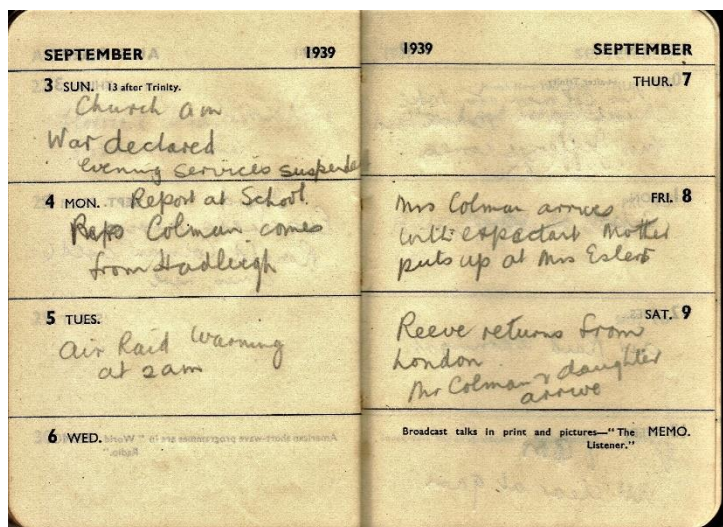 SEPTEMBER 1939
3 SUN. 13 after Trinity.
Church am
War declared
evening services suspended
4 MON. Report at School.
Colman comes
from Hadleigh
5 TUES.
Air Raid Warning
at 2 am
6 WED.
1939 SEPTEMBER
THUR. 7
FRI. 8
Mrs Colman arrives
with expectant Mother
puts up at Mrs
SAT. 9
Reeve returns from
London
Mr Colman & daughter
arrive
Broadcast talks in print and pictures—"The MEMO.
Listener."